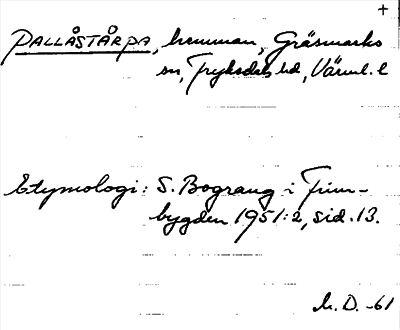 +
PALLÅSTÅRPA, hemman, Gräsmarks
sn, Fryksdals hd, Värml. l
Etymologi: S. Bograng i Finn-
bygden 1951:2, sid. 13.
M. D. -61